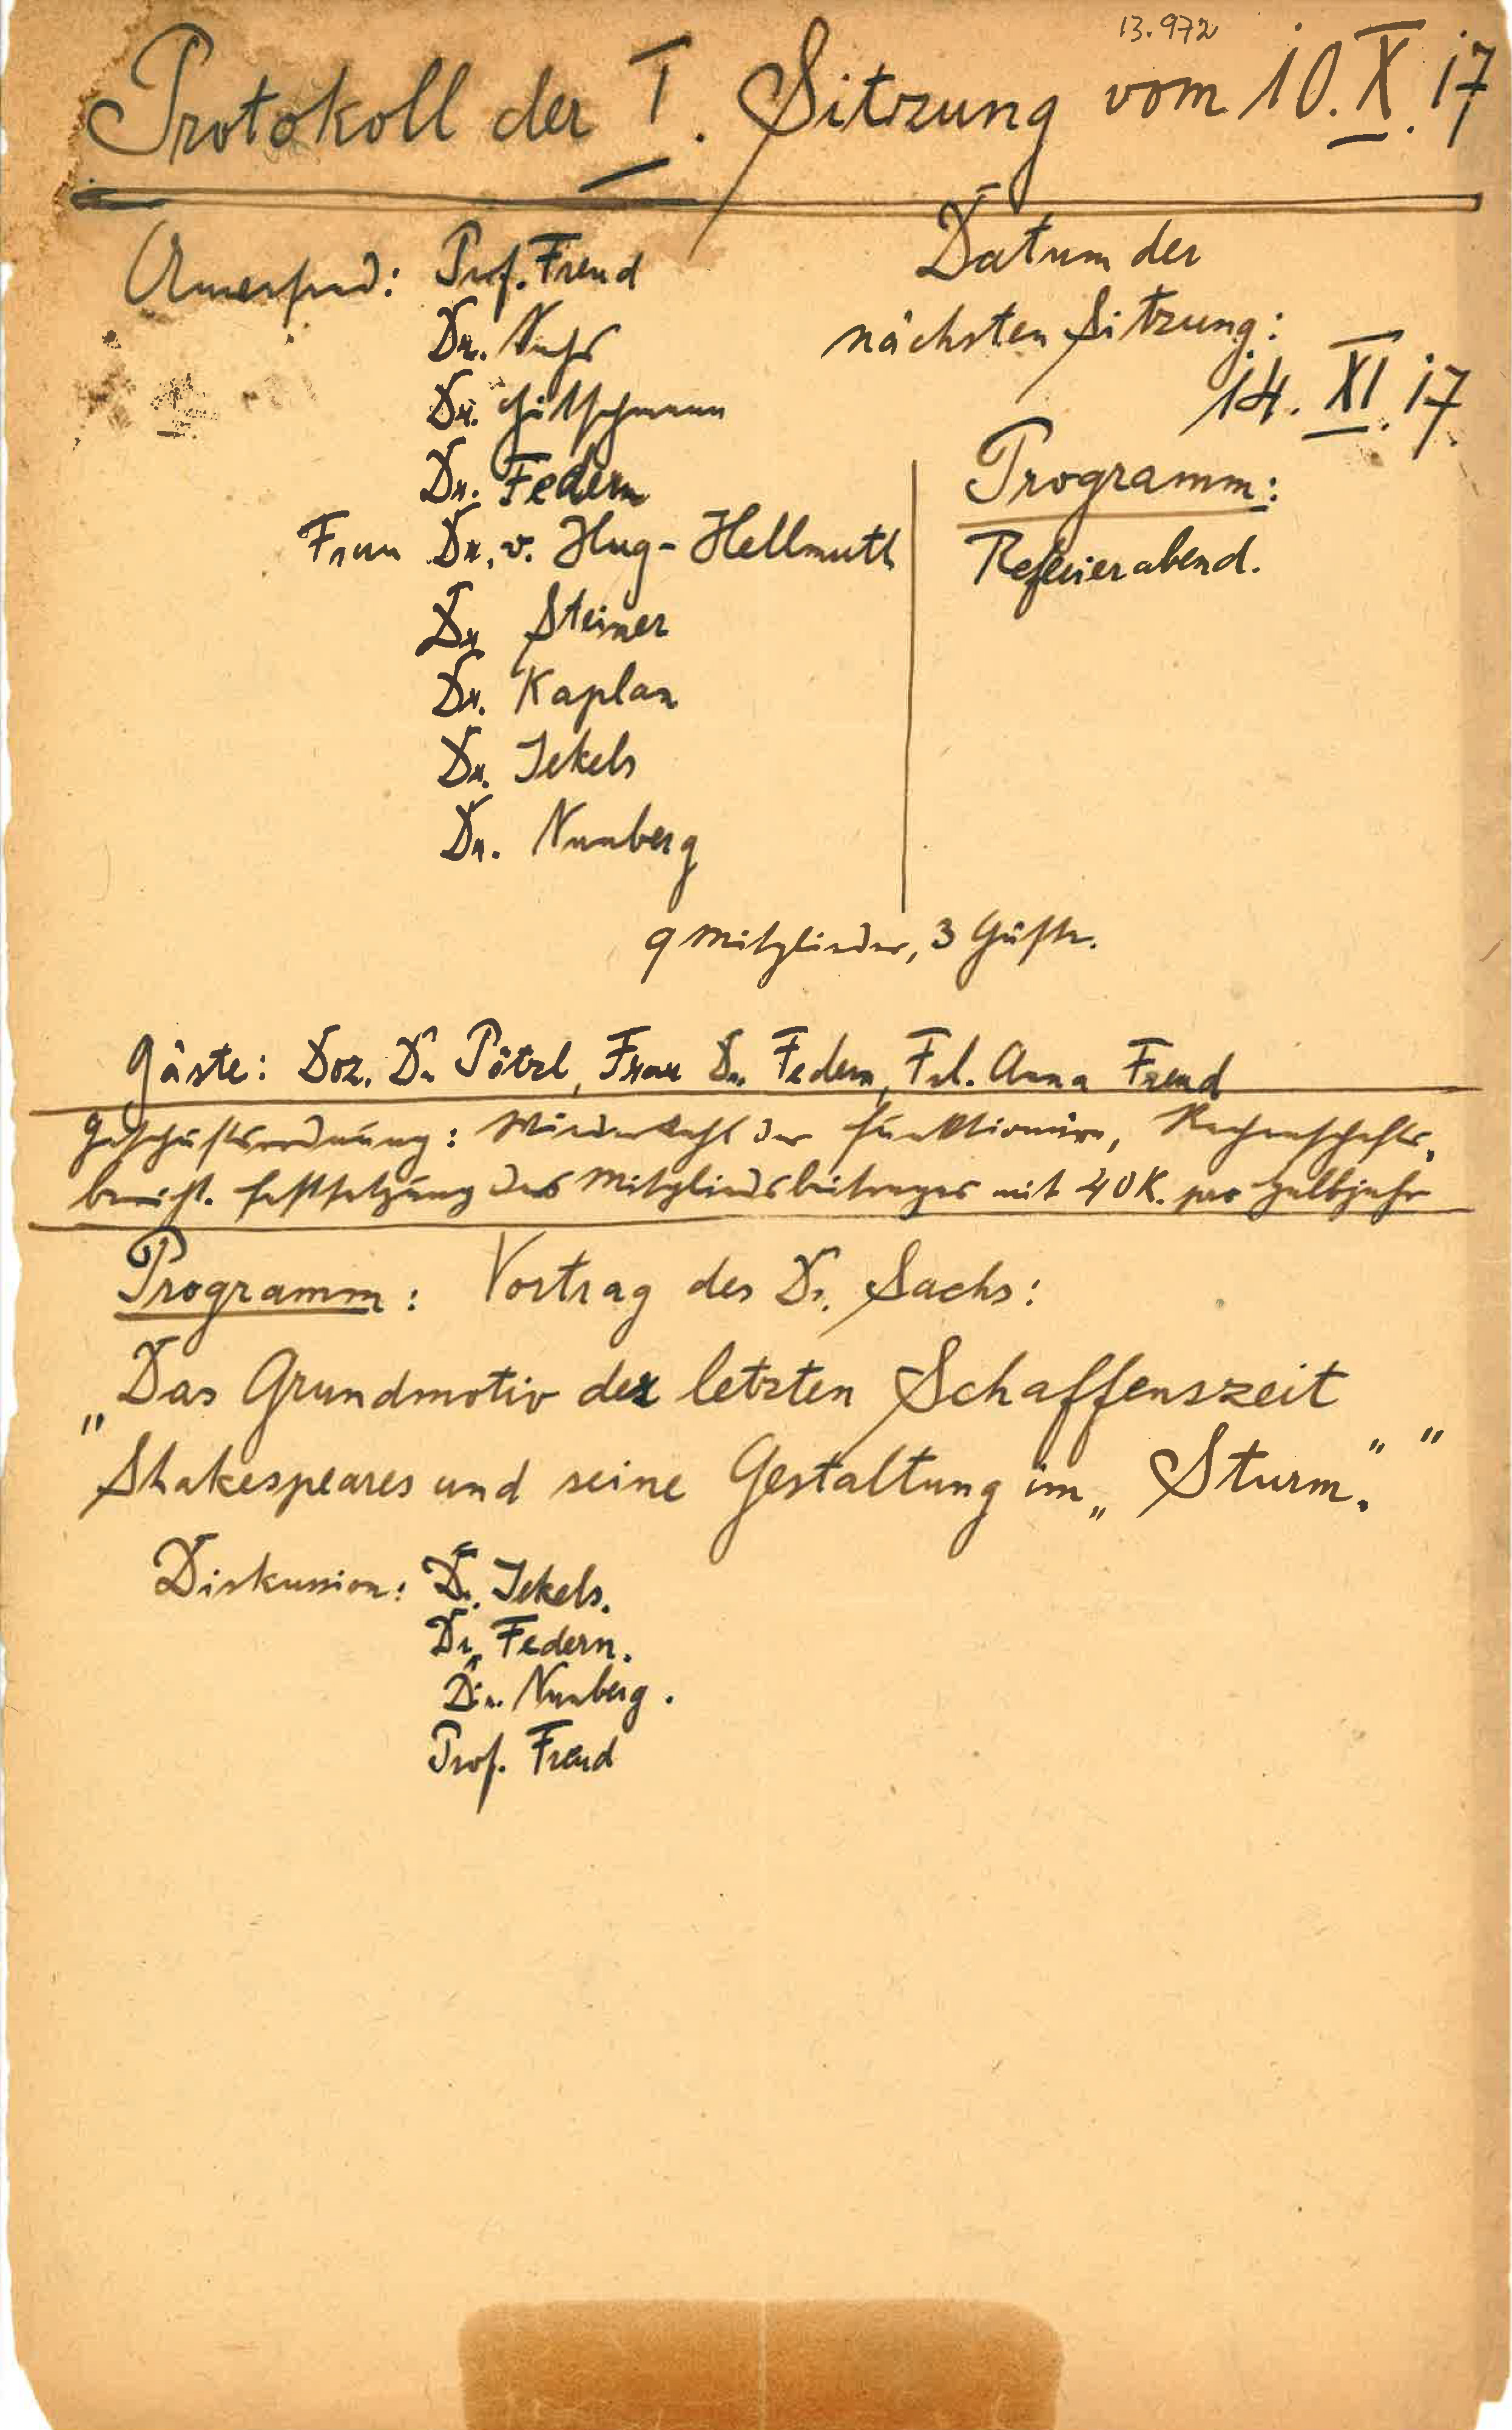 13.972
Protokoll der I. Sitzung vom 10.X.17
Anwesend: Prof. Freud
Dr. Sachs
Dr. Hitschmann
Dr. Federn
Frau Dr. v. Hug-Hellmuth
Dr. Steiner
Dr. Kaplan
Dr. Jekels
Dr. Nunberg
Datum der
nächsten Sitzung:
14. XI. 17
Programm:
Referierabend.
9 Mitglieder, 3 Gäste.
Gäste: Doz. Dr. Pötzl, Frau Dr. Federn, Frl. Anna Freud
Geschäftsordnung: Wiederwahl der Funktionäre, Rechenschafts-
bericht. Festsetzung des Mitgliedsbeitrages mit 40 K. pro Halbjahr
Programm: Vortrag des Dr. Sachs:
„Das Grundmotiv der letzten Schaffenszeit
Shakespeares und seine Gestaltung im „Sturm“.“
Diskussion: Dr. Jekels.
Dr. Federn.
Dr. Nunberg.
Prof. Freud